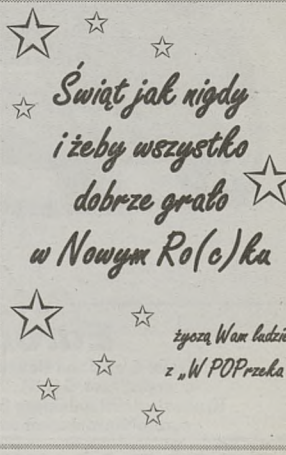 Świąt jak nigdy
i żeby wszystko
dobrze grało
w Nowym Ro(c)ku
życzą Wam ludzie
z „W POPrzeka